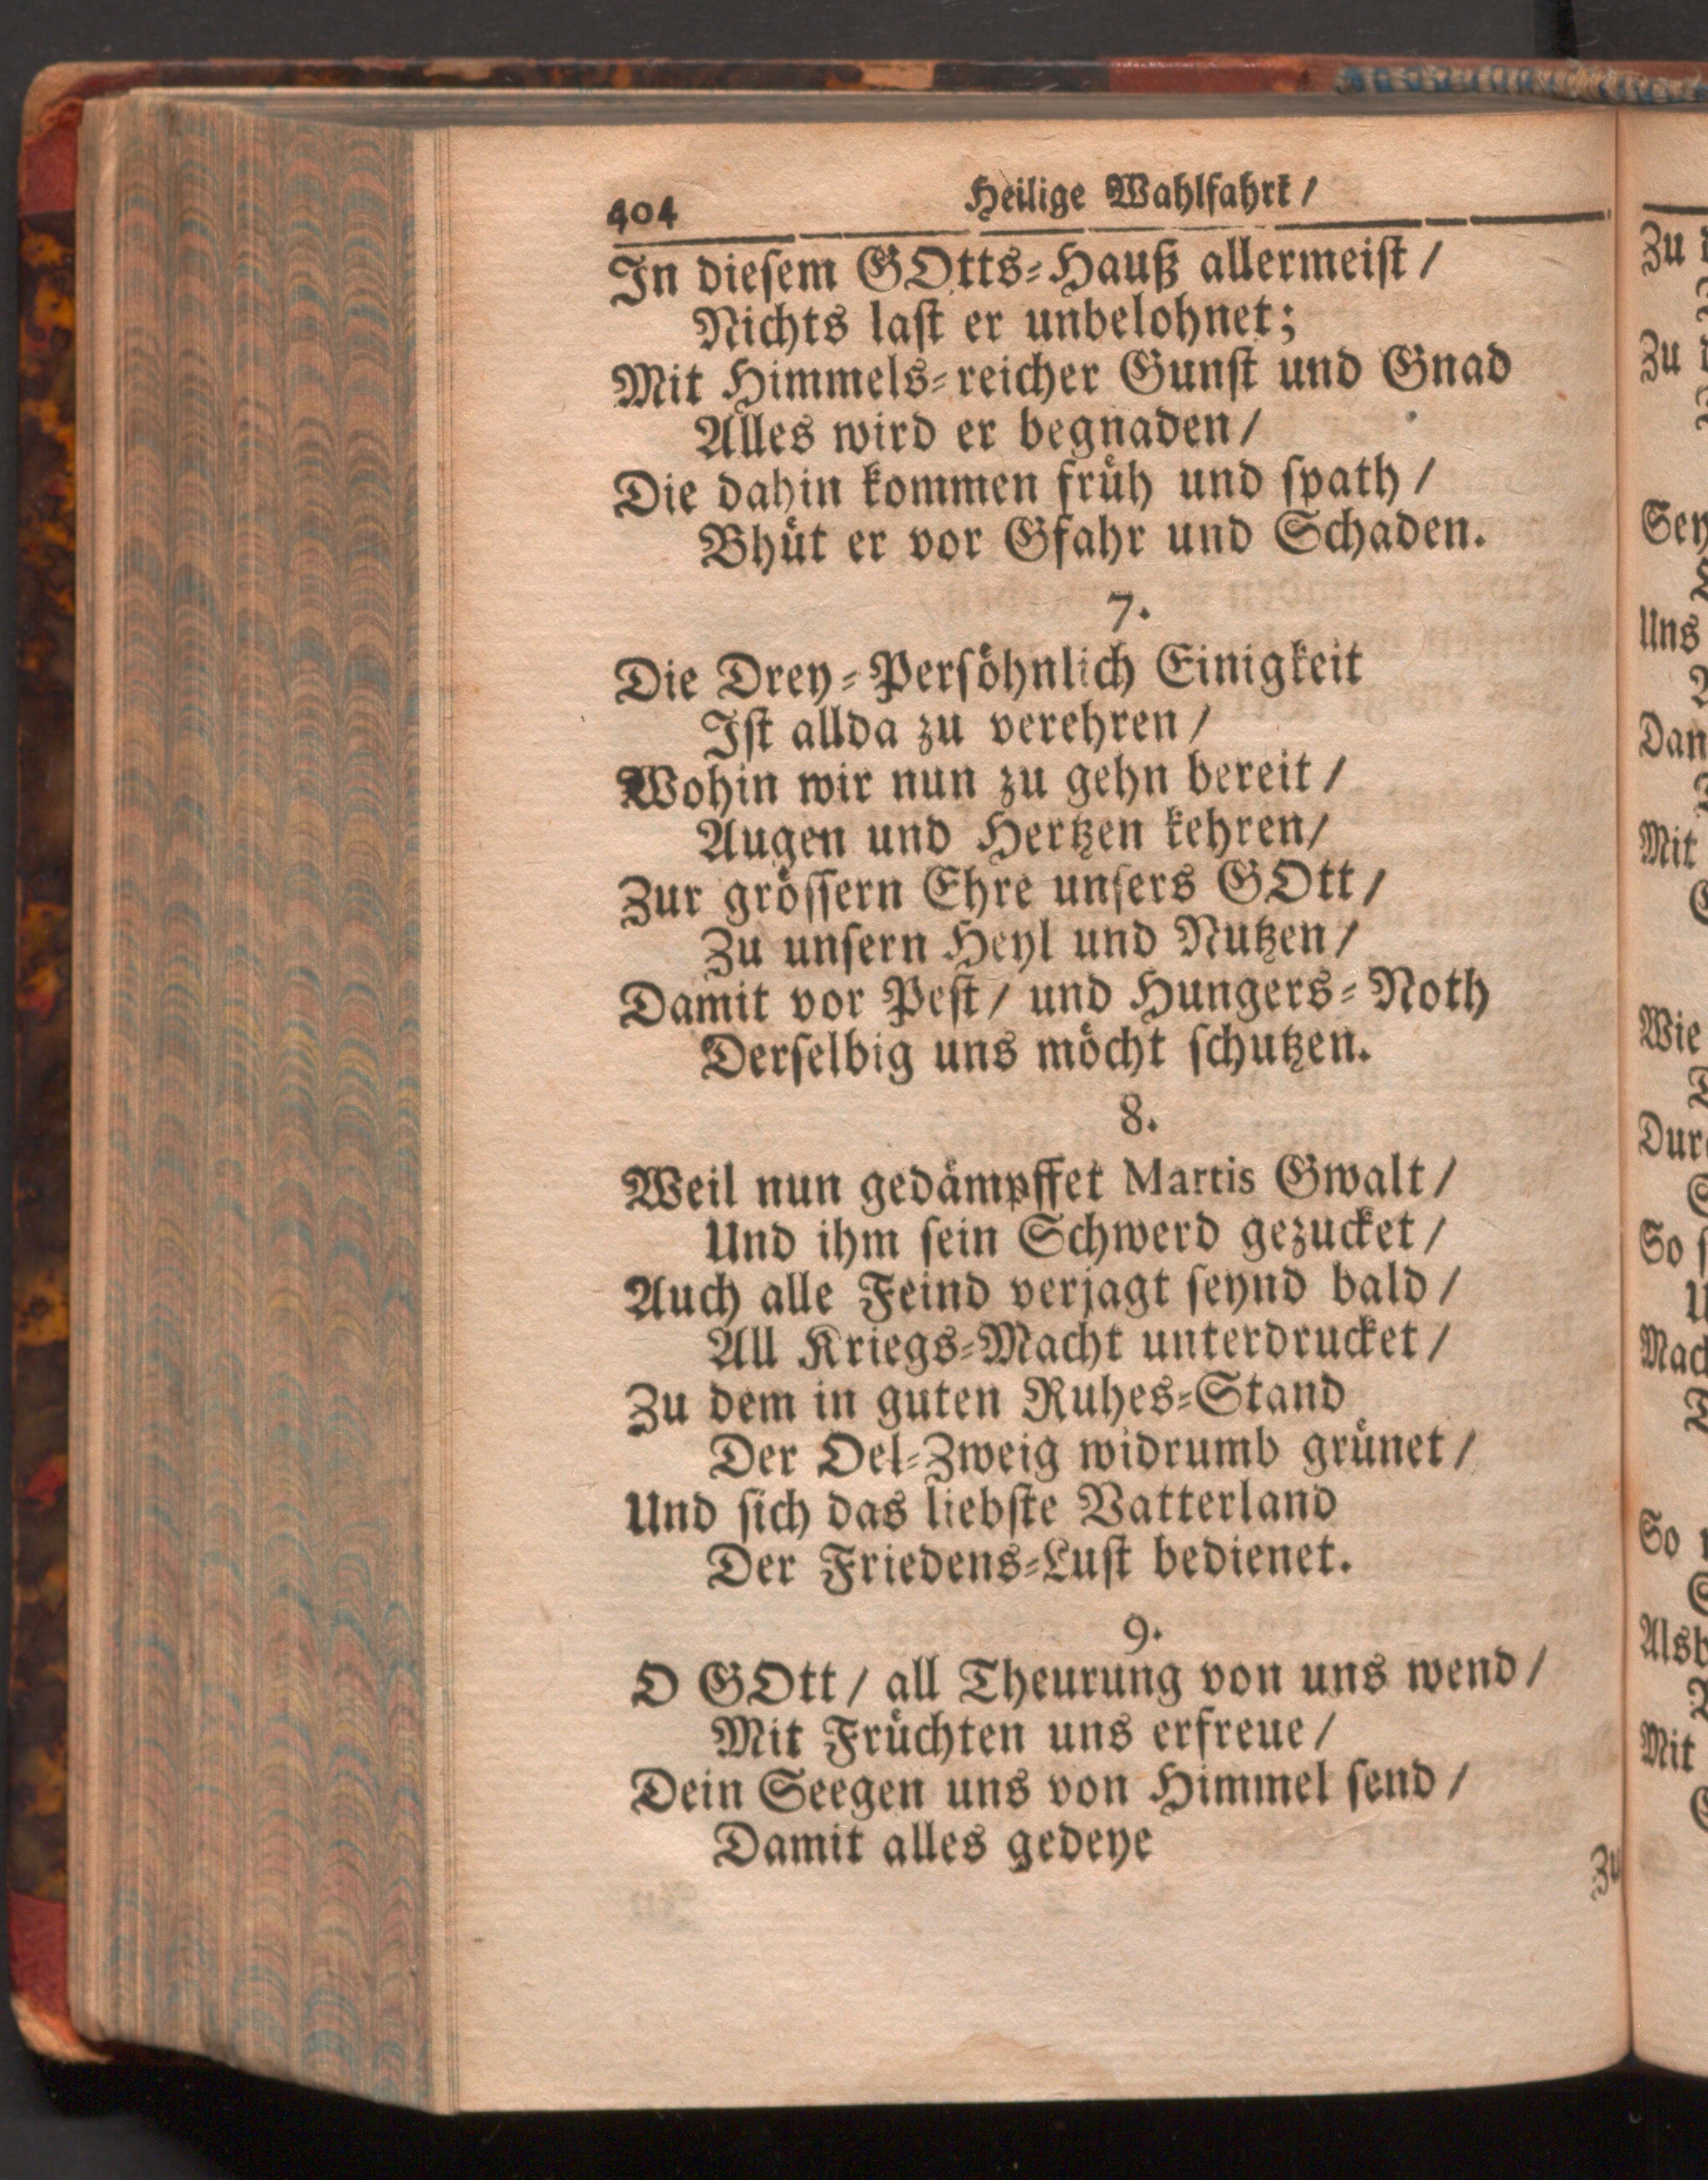 404 Heilige Wahlfahrt /
In dieſem GOtts-Hauß allermeiſt /
Nichts laſt er unbelohnet;
Mit Himmels-reicher Gunſt und Gnad
Alles wird er begnaden /
Die dahin kommen früh und ſpath /
Bhüt er vor Gfahr und Schaden.
7.
Die Drey-Perſöhnlich Einigkeit
Iſt allda zu verehren /
Wohin wir nun zu gehn bereit /
Augen und Hertzen kehren /
Zur gröſſern Ehre unſers GOtt /
Zu unſern Heyl und Nutzen /
Damit vor Peſt / und Hungers-Noth
Derſelbig uns möcht ſchutzen.
8.
Weil nun gedämpffet Martis Gwalt /
Und ihm ſein Schwerd gezucket /
Auch alle Feind verjagt ſeynd bald /
All Kriegs-Macht unterdrucket /
Zu dem in guten Ruhes-Stand
Der Oel-Zweig widrumb grünet /
Und ſich das liebſte Vatterland
Der Friedens-Luſt bedienet.
9.
O GOtt / all Theurung von uns wend /
Mit Früchten uns erfreue /
Dein Seegen uns von Himmel ſend /
Damit alles gedeye
Zu
Zu
Zu
Uns
Mit
Wie
So
So
Mit